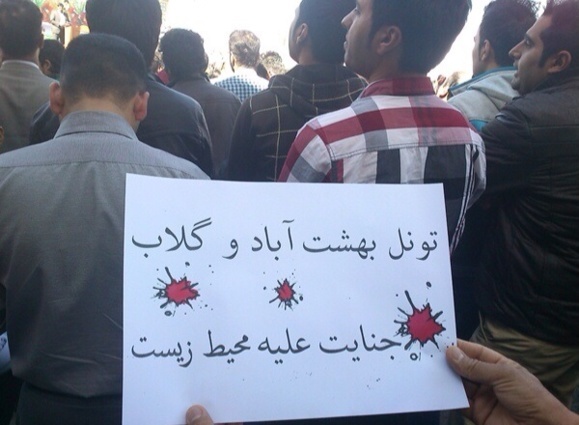 تونل بهشت آباد و گلاب
جنایت علیه محیط زیست